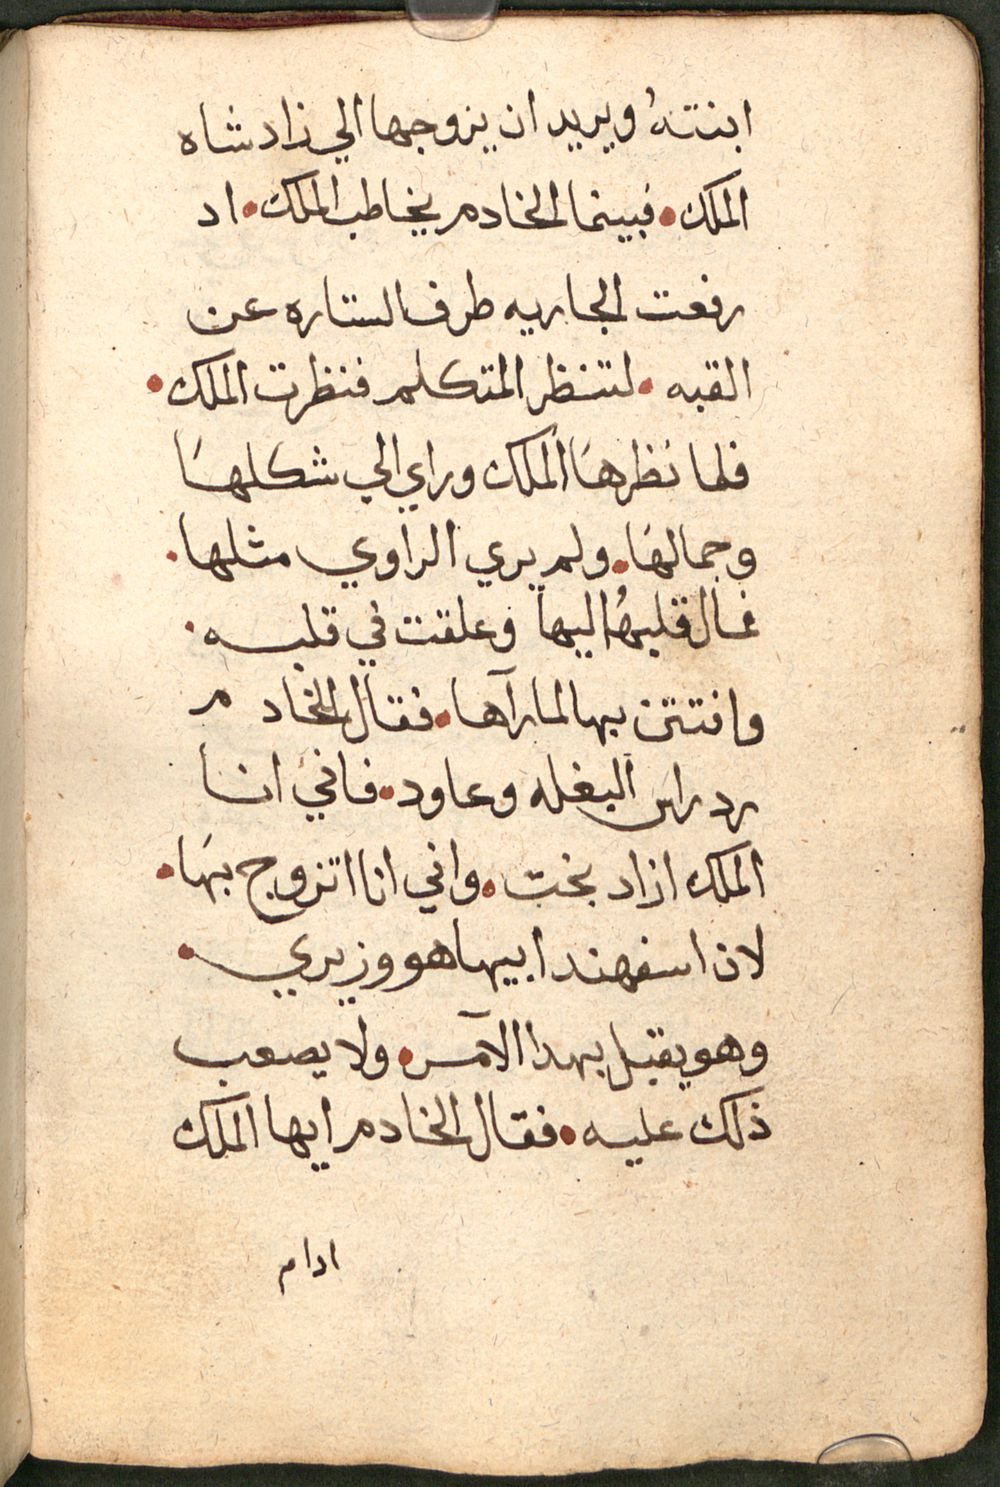 ابنتهُ ويريد ان يزوجها الي زاد شاه
الملك • فبينما الخادم يخاطب الملك • اد
رفعت الجاريه طرف الستاره عن
القبه • لتنظر المتكلم فنظرت الملك •
فلما نظرهَا الملك وراي الي شكلهَا
وجمالهَا • ولم يري الراوي مثلها •
فمال قلبهُ اليها وعلقت في قلبه •
وافتتن بها لما رآها • فقال الخادم
رد راس البغله وعاود • فاني انا
الملك ازاد بخت • واني انا اتزوج بهَا •
لان اسفهند ابيها هو وزيري •
وهو يقبل بهدا الآمر • ولا يصعب
ذلك عليه • فقال الخادم ايها الملك
ادام